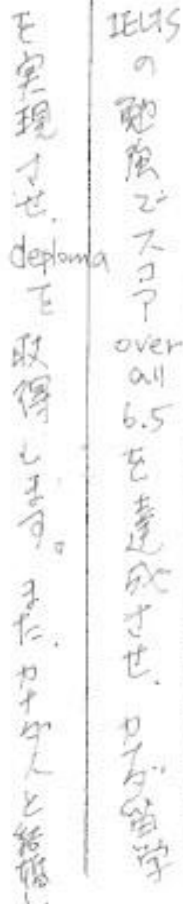 IELTSの勉強でスコアover all 6.5を達成させ、カナダ留学
を実現させ、deplomaを取得します。また、カナダ人と結婚し